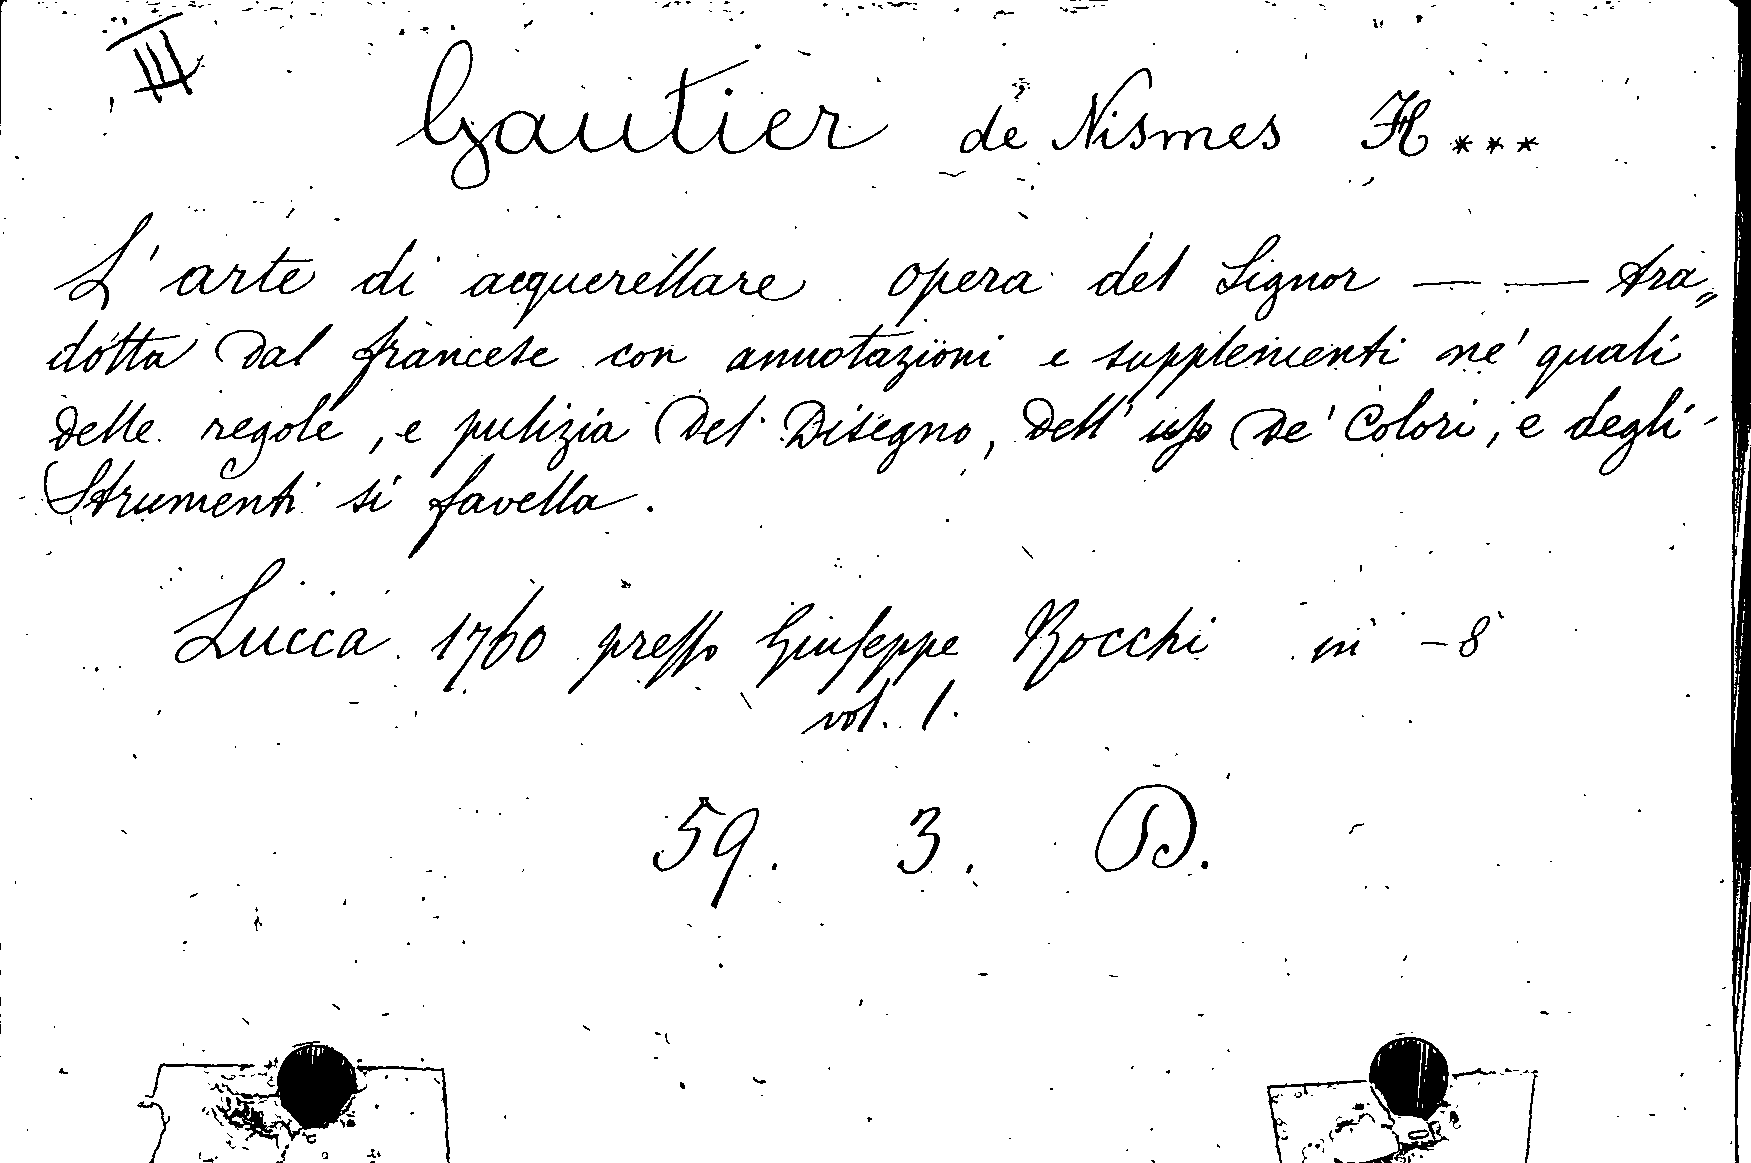 III
Gautier de Nismes H***
L'arte di acquerellare opera del Signor — — tra„
dotta dal francese con annotazioni e supplementi ne' quali
delle regole, e pulizia del Disegno, dell' uso de' Colori, e degli
Strumenti si favella.
Lucca 1760 presso Giuseppe Rocchi in - 8
vol. 1.
59. 3. D.